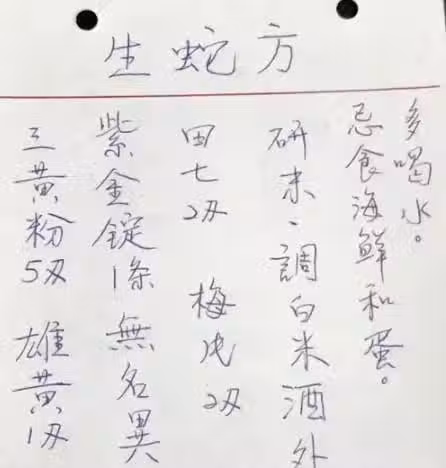 生蛇方
三黃粉5刄 雄黃1刄
紫金錠1條 無名異
田七2刄 梅片2刄
研末、調白米酒外
忌食海鮮和蛋。
多喝水。